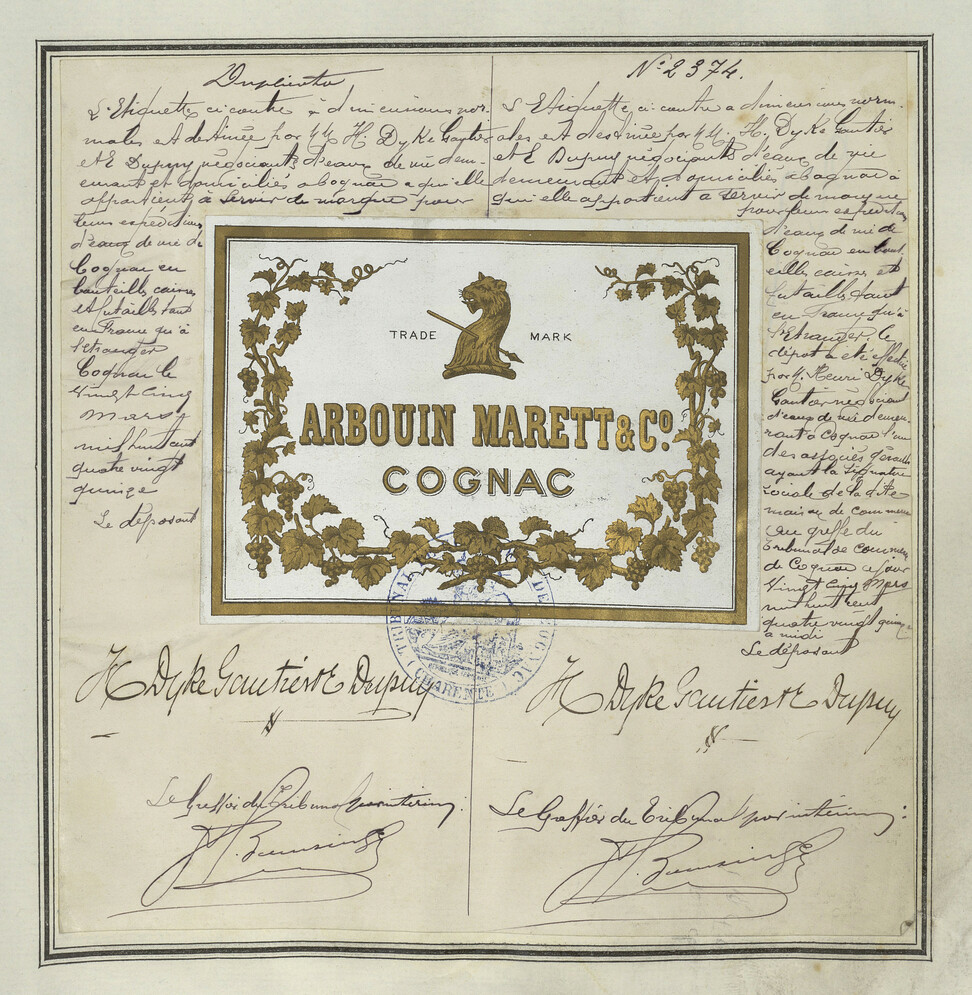 Duplicata
L'Etiquette ci-contre a dimensions nor-
males est destinée par MM. H. Dyke Gautier
et E Dupuy négociants d'eaux de vie dem-
eurant et domiciliés a Cognac a qu'elle
appartient, a servir de marque pour
leurs expéditions
d'eaux de vie de
Cognac en
bouteilles caisses
et futailles tant
en France qu'à
l'étranger
Cognac le
Vingt cinq
Mars
mil huit cent
quatre vingt
quinze
Le déposant
N° 2374.
L'Etiquette ci-contre a dimensions norm-
ales est destinée par MM. H. Dyke Gautier
et E Dupuy négociants d'eaux de vie
demeurant et domiciliés a Cognac à
qui elle appartient a servir de marque
pour leurs expéditions
d'eaux de vie de
Cognac en bout
eilles caisses et
futailles tant
en France qu'à
l'Etranger, le
dépot a été effectué
par M. Henri Dyke
Gautier négociant
d'eaux de vie demeu
rant à Cognac l'un
des associés gérants
ayant la signature
sociale de la dite
maison de commerce
au greffe du
Tribunal de Commerce
de Cognac ce jour
Vingt cinq Mars
mil huit cent
quatre vingt quinze
a midi
Le déposant
TRADE MARK
ARBOUIN MARETT & Co.
COGNAC
TRIBUNAL DE COGNAC
(CHARENTE)
H Dyke Gautier & E Dupuy
H Dyke Gautier & E Dupuy
Le Greffier du Tribunal par intérim:
Le Greffier du Tribunal par intérim: